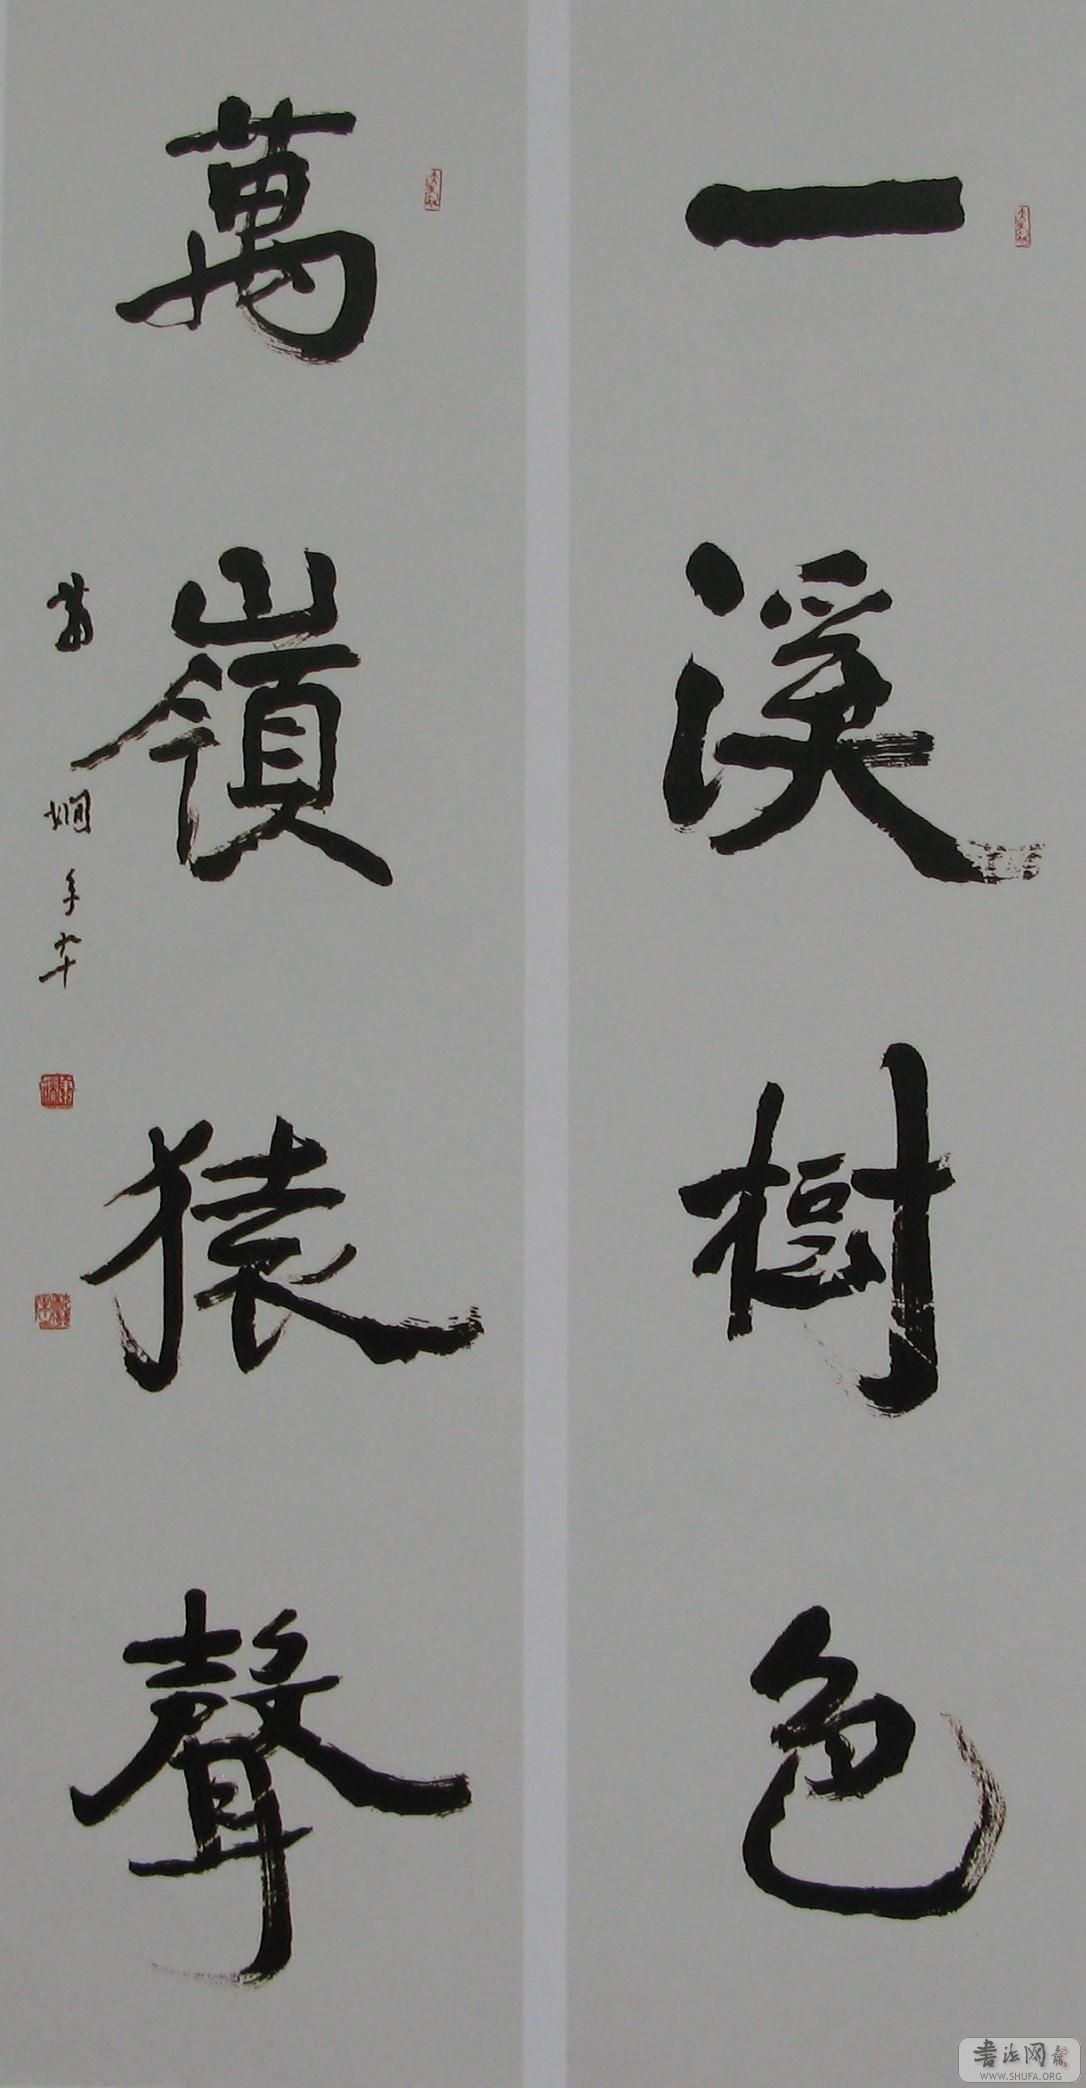 一溪樹色
萬嶺猿聲
蕭嫻年九十
書法网
WWW.SHUFA.ORG